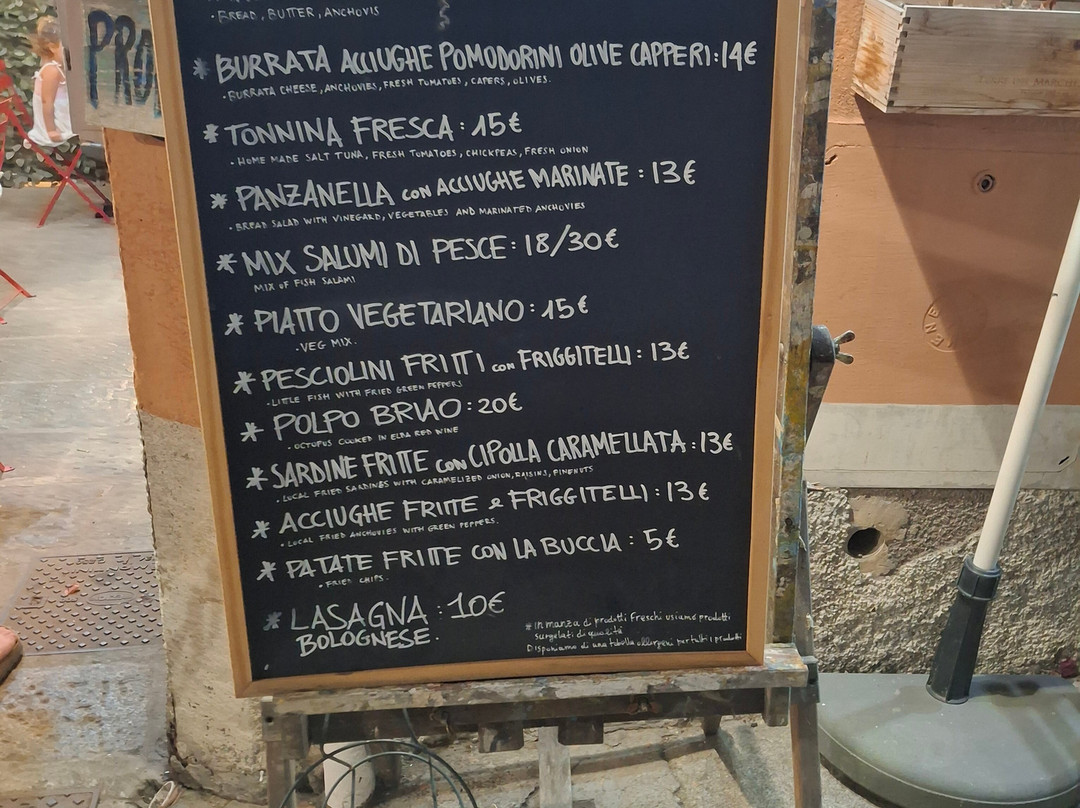 PRO
. BREAD, BUTTER, ANCHOVIS
* BURRATA ACCIUGHE POMODORINI OLIVE CAPPERI: 14€
. BURRATA CHEESE, ANCHOVIES, FRESH TOMATOES, CAPERS, OLIVES.
* TONNINA FRESCA: 15€
. HOME MADE SALT TUNA, FRESH TOMATOES, CHICKPEAS, FRESH ONION
* PANZANELLA con ACCIUGHE MARINATE: 13€
. BREAD SALAD WITH VINEGARD, VEGETABLES AND MARINATED ANCHOVIES
* MIX SALUMI DI PESCE: 18/30€
MIX OF FISH SALAMI
* PIATTO VEGETARIANO: 15€
. VEG MIX.
* PESCIOLINI FRITTI con FRIGGITELLI: 13€
. LITTLE FISH WITH FRIED GREEN PEPPERS
* POLPO BRIAO: 20€
. OCTOPUS COOKED IN ELBA RED WINE
* SARDINE FRITTE con CIPOLLA CARAMELLATA: 13€
. LOCAL FRIED SARDINES WITH CARAMELIZED ONION, RAISINS, PINENUTS
* ACCIUGHE FRITTE e FRIGGITELLI: 13€
. LOCAL FRIED ANCHOVIES WITH GREEN PEPPERS.
* PATATE FRITTE CON LA BUCCIA: 5€
. FRIED CHIPS.
* LASAGNA: 10€
BOLOGNESE.
* in manza di prodotti freschi usiamo prodotti
surgelati di qualità
Disponiamo di una tabella allergeni per tutti i prodotti